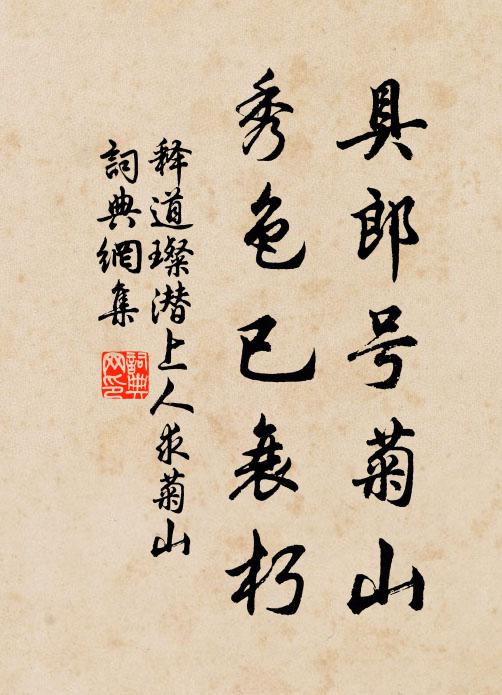 具郎号菊山
秀色已衰朽
释道璨潜上人求菊山
词典網集
詞典網印